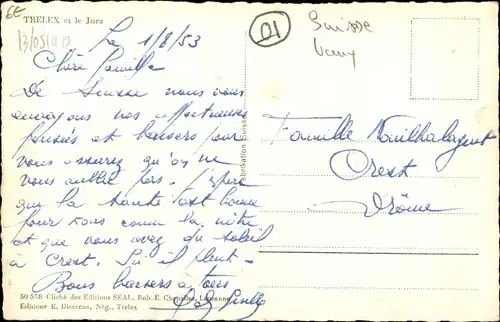 6E
TRELEX et le Jura
Le 1/8/53
01
Suisse
Vaux
Chère famille
De Suisse nous vous
envoyons nos affectueuses
pensées et baisers pour
vous assurez qu'on ne
vous oublie pas. J'espère
que la santé est bonne
pour vous comme la nôtre
et que vous avez du soleil
à Crest. Ici il pleut -
Bons baisers à tous
Famille
Crest
Drôme
Fabrication Suisse
50.558 Cliché des Editions SEAL, Rob. E. Chapallaz, Lausanne
Editions E. Dieterens, Nég., Trelex